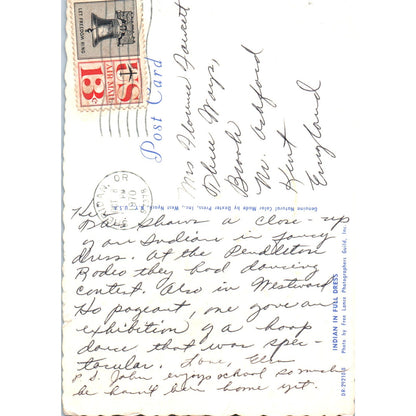 LET FREEDOM RING
US
AIR MAIL
13c
Post Card
Mrs Florence Faucett
Three Ways,
Brook
Nr. Ashford
Kent
England
Genuine Natural Color Made by Dexter Press, Inc., West Nyack, N.Y.
Hi:
This shows a close-up
of an Indian in fancy
dress. At the Pendleton
Rodeo they had dancing
contest. Also in Westward
Ho pageant, one gave an
exhibition of a hoop
dance that was spec-
tacular. Love,
P.S. John enjoys school so much
he hasn't been home yet.
INDIAN IN FULL DRESS
Photo by Free Lance Photographers Guild, Inc.